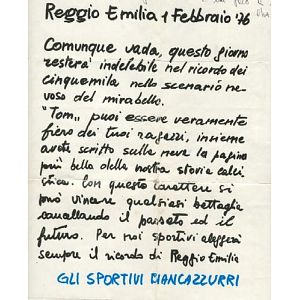 Reggio Emilia 1 Febbraio '76
Comunque vada, questo giorno
resterà indelebile nel ricordo dei
cinquemila nello scenario ne-
voso del mirabello.
"Tom" puoi essere veramente
fiero dei tuoi ragazzi, insieme
avete scritto sulla neve la pagina
più bella della nostra storia calci
stica. Con questo carattere si
può vincere qualsiasi battaglia
cancellando il passato ed il
futuro. Per noi sportivi aleggerà
sempre il ricordo di Reggio Emilia
GLI SPORTIVI BIANCAZZURRI